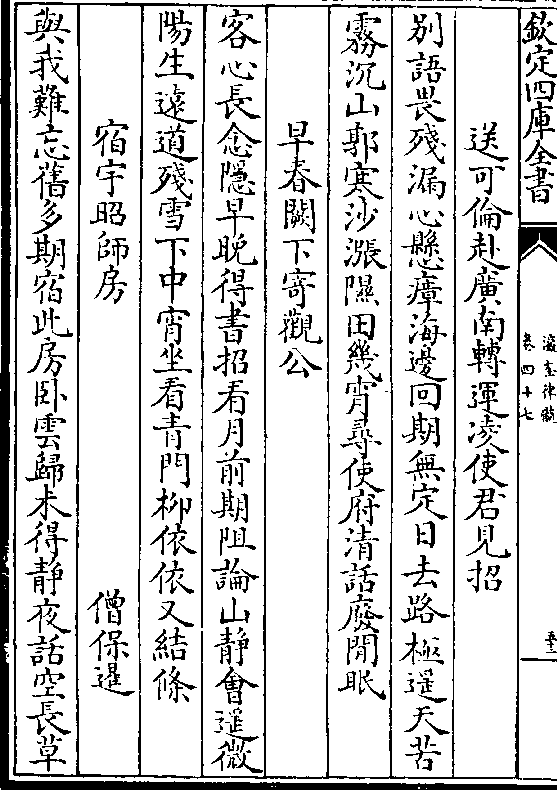 欽定四庫全書
瀛奎律髓
卷四十七
送可倫赴廣南轉運凌使君見招
別語畏殘漏心懸瘴海邊回期無定日去路極遥天苦
霧沉山郭寒沙漲隰田幾宵尋使府清話廢閒眠
早春闕下寄觀公
客心長念隠早晚得書招看月前期阻論山静會遥微
陽生遠道殘雪下中宵坐看青門柳依依又結條
宿宇昭師房
僧保暹
與我難忘舊多期宿此房卧雲歸未得静夜話空長草